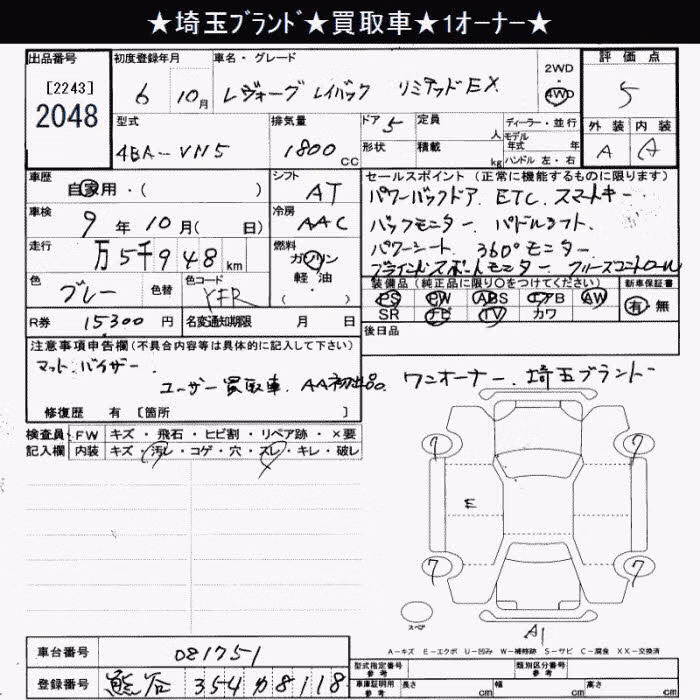 ★埼玉ﾌﾞﾗﾝﾄﾞ★買取車★1オーナー★
出品番号 初度登録年月 車名・グレード 2WD 評価点
[2243] 6 10月 レヴォーグ レイバック リミテッドEX ・4WD 5
2048
型式 排気量 ドア 5 定員 人 ディーラー・並行 外装 内装
4BA-VN5 1800cc 形状 積載 kg モデル年式 年 ハンドル 左・右 A A
車歴 自家用・( ) シフト AT セールスポイント(正常に機能するものに限ります)
車検 9年10月( 日) 冷房 AAC パワーバックドア. ETC. スマートキー
バックモニター パドルシフト.
走行 万5千948km 燃料 ガソリン パワーシート. 360°モニター
軽・油 ( ) ブラインドスポートモニター クルーズコントロール
色 グレー 色替 色コード 装備品(純正品に限り○をつけてください) 新車保証書
PS PW ABS エアB AW 有・無
SR ナビ TV カワ
R券 15300円 名変通知期限 月 日 後日品
注意事項申告欄(不具合内容等は具体的に記入して下さい)
マット.バイザー.
ユーザー買取車. AA初出品. ワンオーナー. 埼玉ブランド
修復歴 有 [箇所 ]
検査員 FW キズ・飛石・ヒビ割・リペア跡・×要
記入欄 内装 キズ・汚レ・コゲ・穴・スレ・キレ・破レ
7 7
E
7 7
スペア
A1
A-キズ E-エクボ U-凹み W-補修跡 S-サビ C-腐食 XX-交換済
車台番号 081751 型式指定番号 参考 類別区分番号 参考
登録番号 熊谷 354 か 8118 車庫証明用 参考 長さ cm 幅 cm 高さ cm